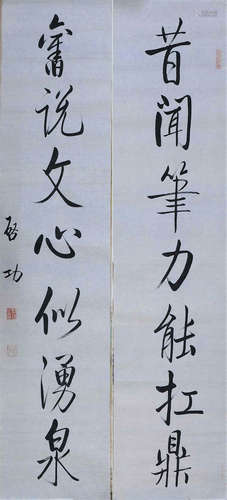 昔闻筆力能扛鼎
畬说文心似湧泉
启功